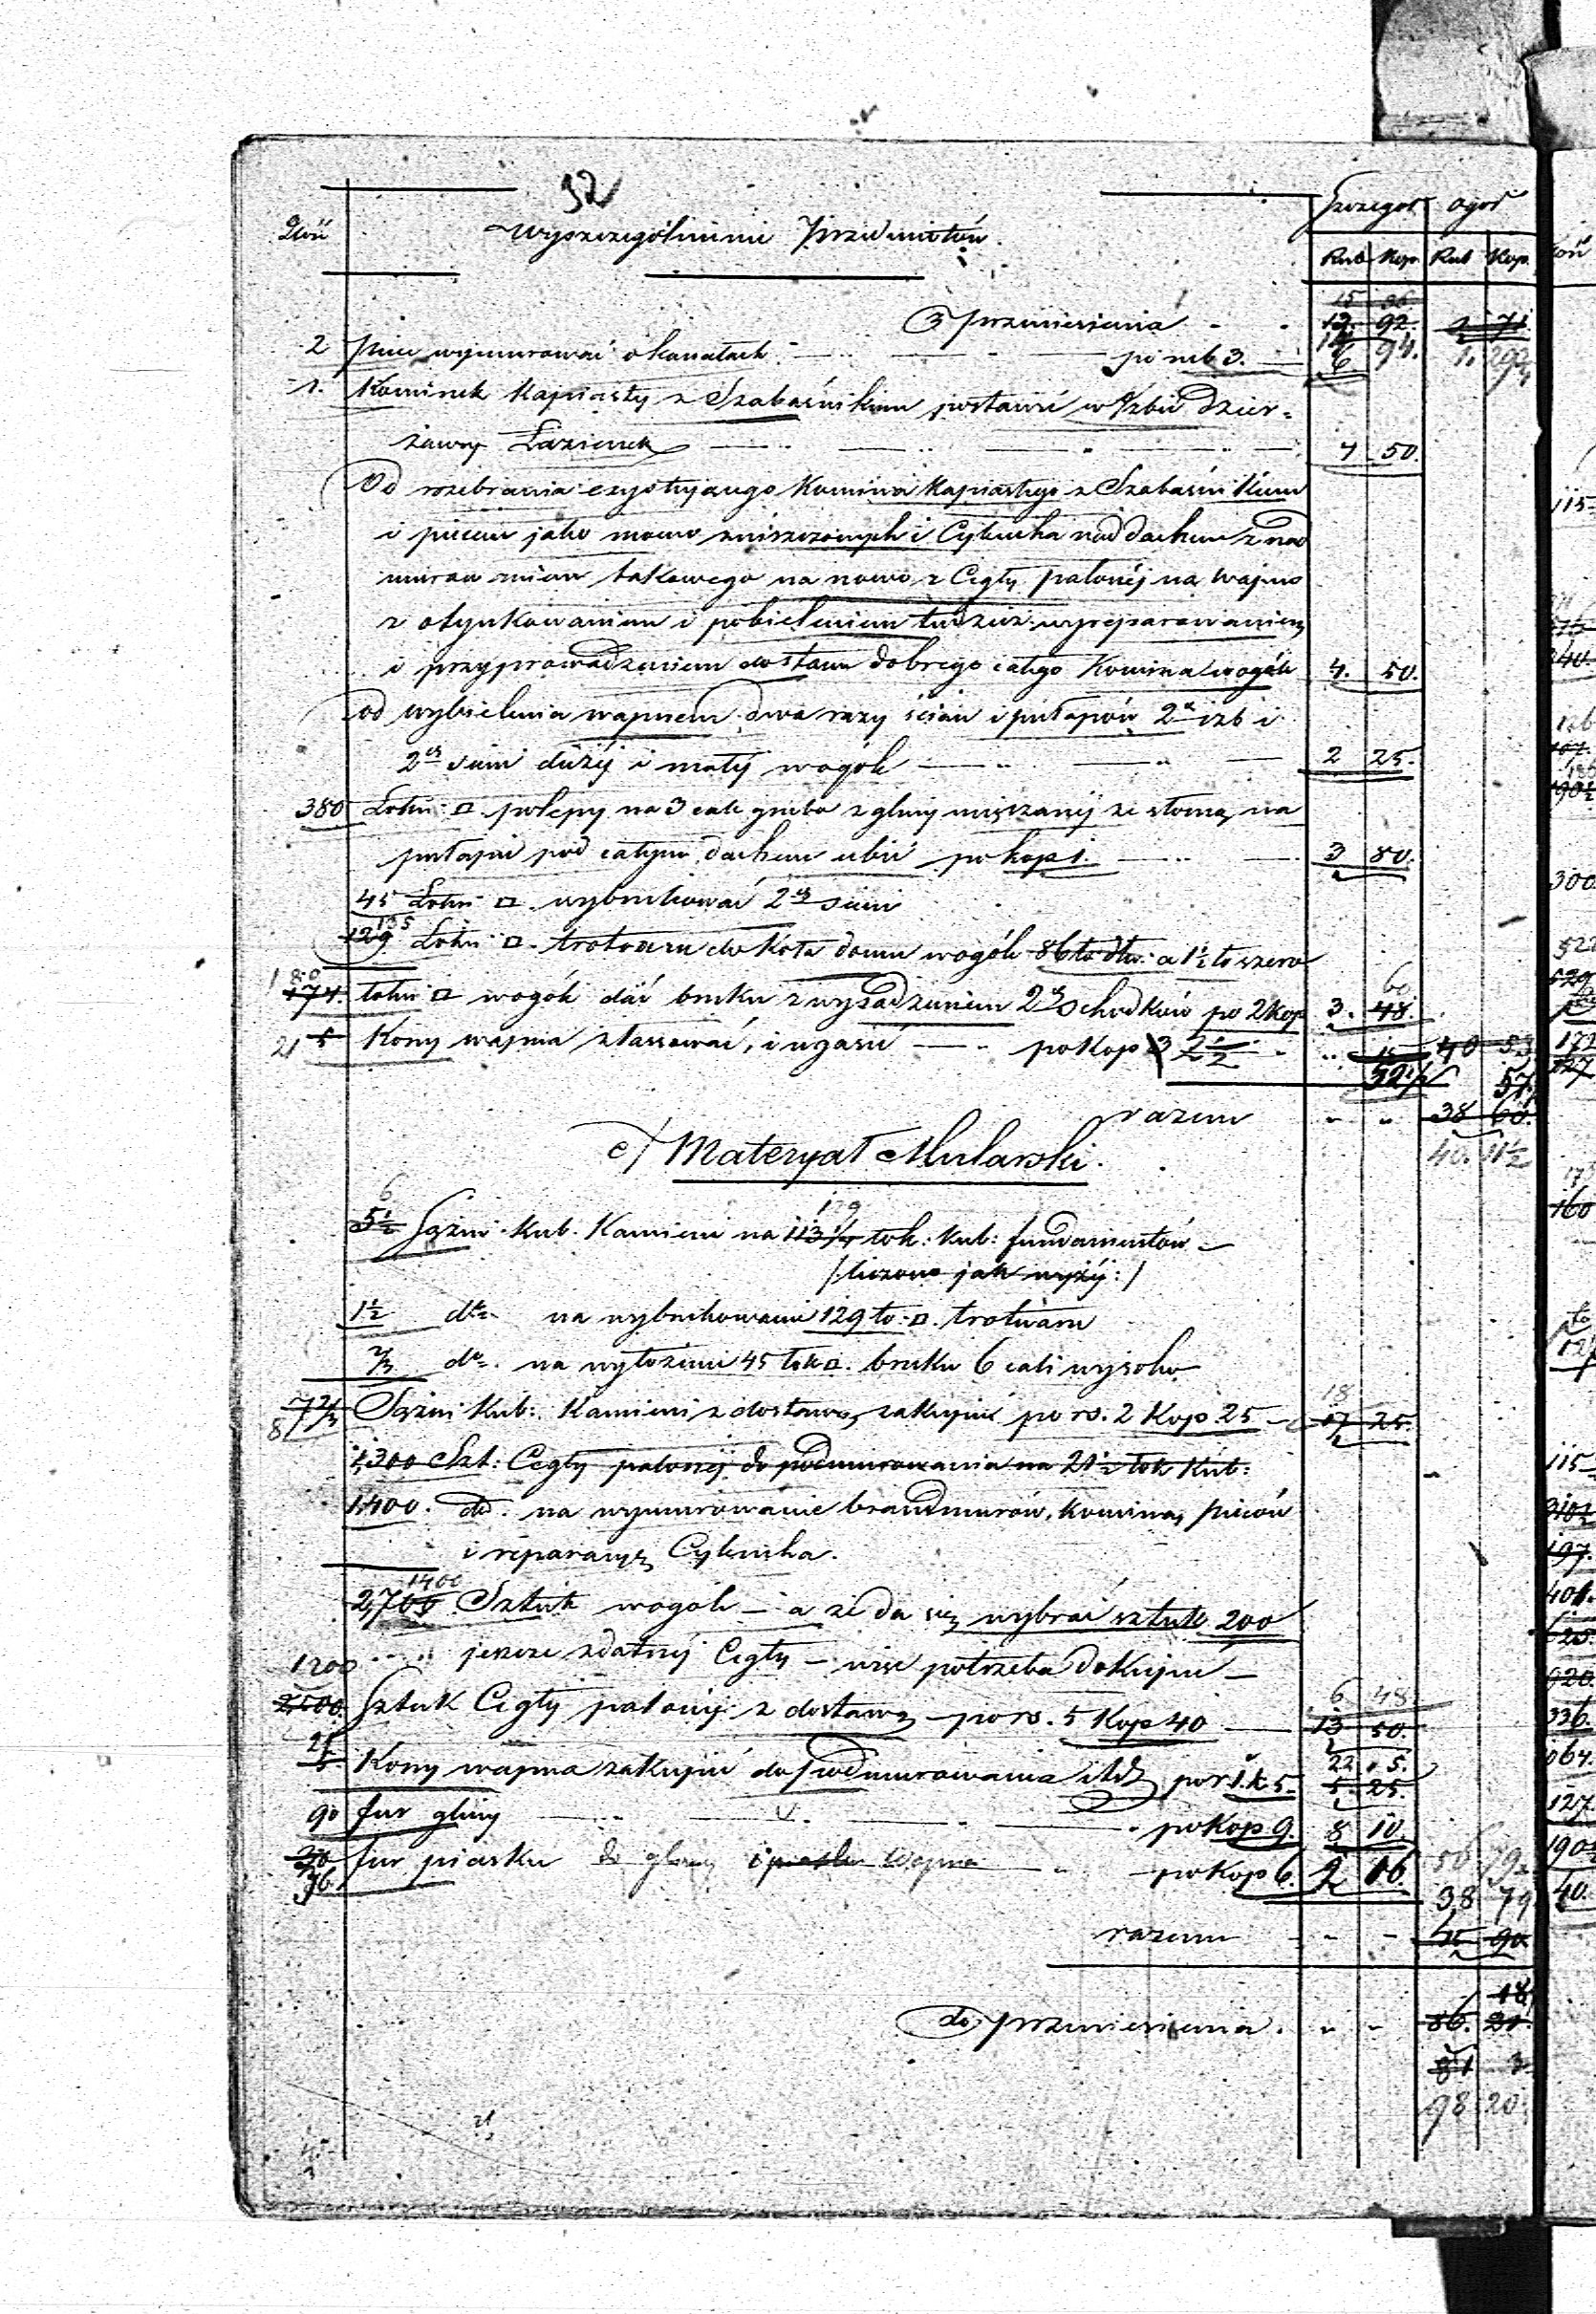 32
Ilość Wyszczególnienie Przedmiotów. Szczegół ogół
Rub Kop. Rub Kop.
Z przeniesienia - - 15 36
13. 92. 71.
2 piece wymurować o kanałach po rub 3. 6. 94.
1. Kominek kapiasty z Szabaśnikiem postawić w Izbie Dzier-
żawcy Łazienek 4 50.
Od rozebrania exystującego Komina Kapiastego z Szabaśnikiem
i piecem jako mocno zniszczonych i Cylucha nad dachem z nad
murowaniem takowego na nowo z Cegły palonej na wapno
z otynkowaniem i pobieleniem tudzież wyreparowaniem
i przyprowadzeniem do stanu dobrego całego Komina wogóle 4. 50.
od wybielenia wapnem dwa razy ścian i pułapów 2ch izb i
2ch sieni dużej i małej wogóle 2 25.
380 Łokci □ polepy na 3 cale grubo z gliny mięszanej ze słomą na
pułapie pod całym dachem ubić po kop 1. 3 80.
45 Łokci □ wybrukować 2ch sieni
135
129 Łokci □ trotoaru do Koła domu wogóle 86 ło dłu: a 1½ ło szero
180 60
174. łokci □ wogóle dać bruku z wysadzeniem 2ch schodków po 2 kop 3. 48.
21 5 Korcy wapna zlassować, i ugasić po Kop 3 2½ 15 40 53
52½ 57.
razem " " 38 60.
40. 11½
c/ Materyał Mularski.
6 129
5½ Sążni Kub. Kamieni na 113¼ łok: Kub: fundamentów
/: liczono jak wyżej :/
1½ dto na wybrukowanie 129 ło: □. trotuaru
⅔ dto. na wyłożenie 45 łok □. bruku 6 cali wysoko
18
8 7⅔ Sążni Kub: Kamieni z dostawą zakupić po rs. 2 Kop 25 17 25.
1,300 Szt: Cegły palonej do podmurowania na 21½ łok Kub:
1,400. dto. na wymurowanie brandmurów, komina, pieców
i reparacyę Cylucha.
1400
2,700 Sztuk wogóle - a że da się wybrać sztuk 200
jeszcze zdatnej Cegły - więc potrzeba dokupić -
1200 6 48
2,500. Sztuk Cegły palonej z dostawą - po rs. 5 Kop 40 13 50.
21. 22 05.
5 Korcy wapna zakupić do podmurowania itd po r 1. k 5. 5 25.
90 fur gliny po Kop 9. 8 10.
30 fur piasku do gliny i wapna po Kop 6. 2 16.
36 38 79
razem - - 45 90
18
do przeniesienia. " - 86. 21.
81 3
98 20